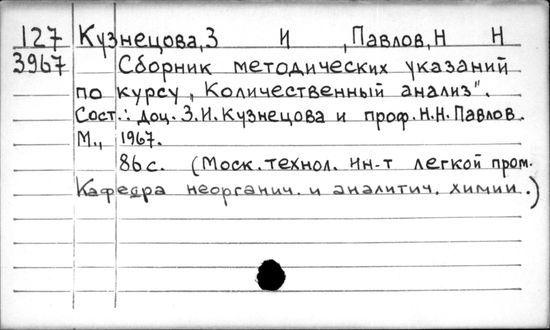 127 Кузнецова,З И ,Павлов,Н Н
3967 Сборник методических указаний
по курсу „Количественный анализ".
Сост.: доц. З.И.Кузнецова и проф.Н.Н.Павлов.
М., 1967.
86с. (Моск.технол. Ин-т легкой пром.
Кафедра неорганич. и аналитич. химии.)